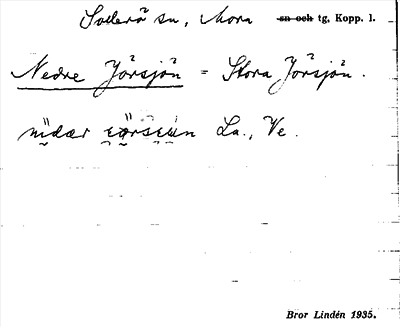 Sollerö sn, Mora ~~sn och~~ tg, Kopp. l.
Nedre Jörsjön = Stora Jörsjön.
La., Ve.
Bror Lindén 1935.